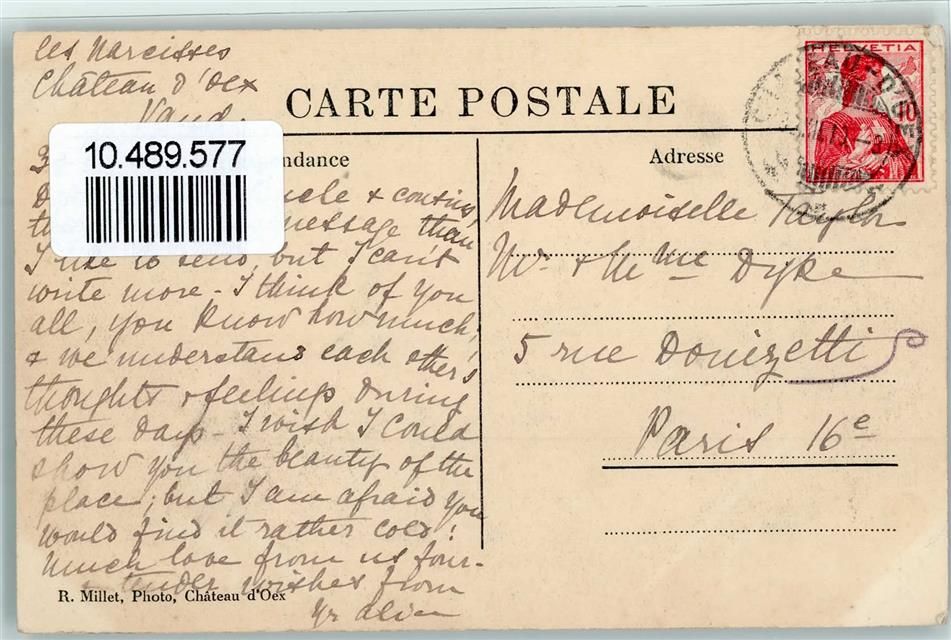 les Narcisses
Château d'Oex
Vaud.
CARTE POSTALE
10.489.577
ndance
Adresse
HELVETIA
10
cle & cousins,
message than
I like to send, but I can't
write more - I think of you
all, you know how much,
& we understand each other's
thoughts & feelings during
these days - I wish I could
show you the beauty of the
place; but I am afraid you
would find it rather cold!
Much love from us four -
& tender wishes from
yr
R. Millet, Photo, Château d'Oex
Mademoiselle Taylor
Mr & Mme Dyke
5 rue Donizetti
Paris 16e